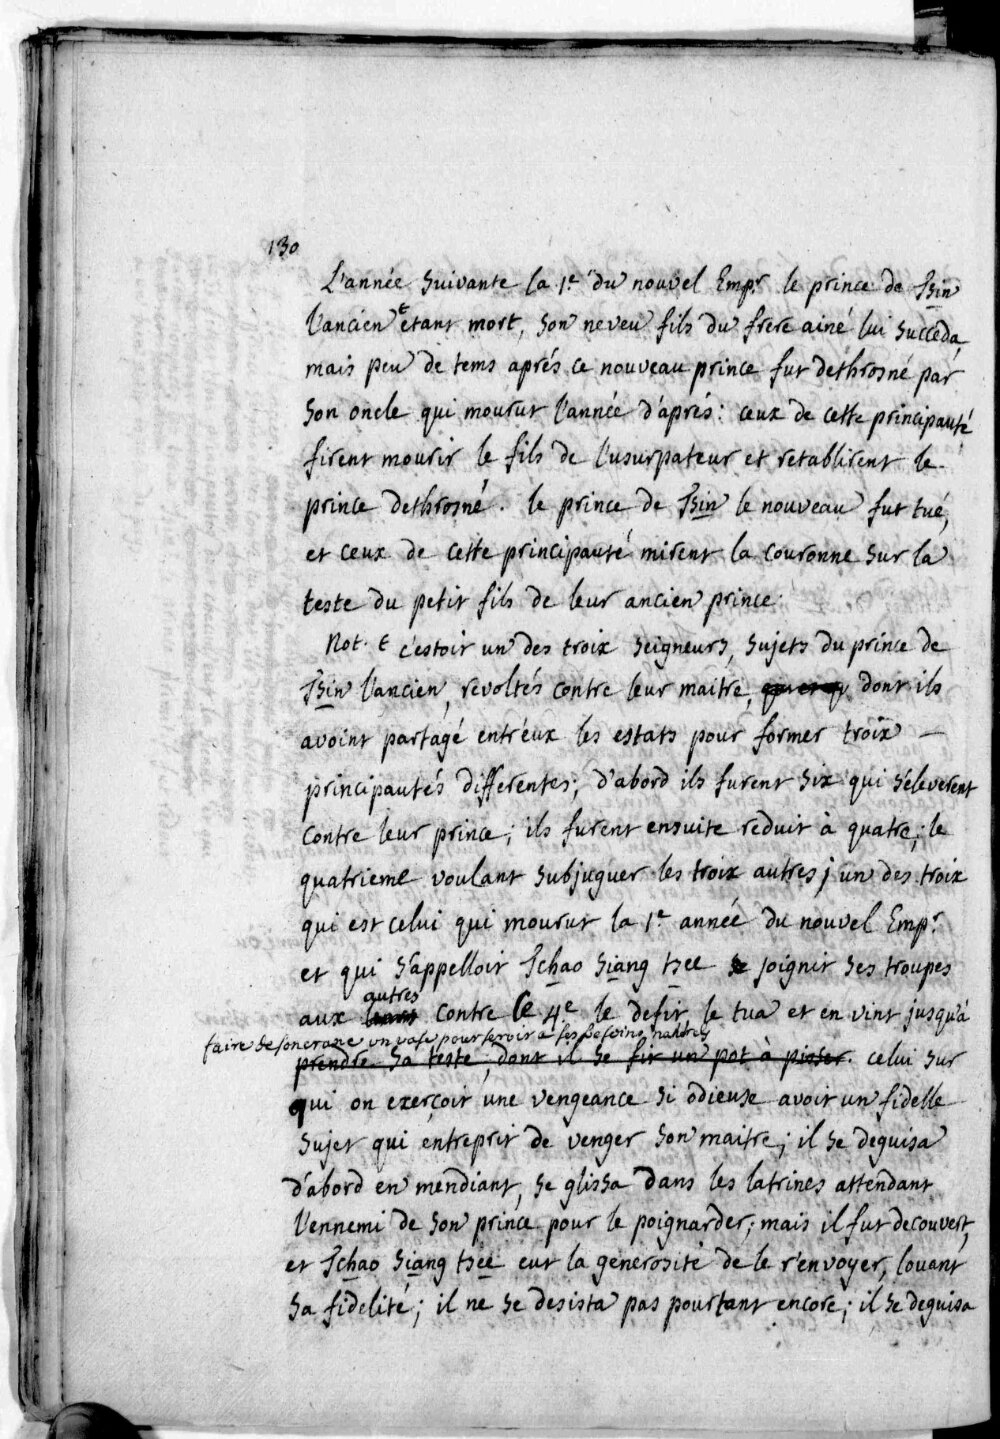 130
L'année suivante la 1.e du nouvel Emp.r le prince de Tsin
l'ancien € étant mort, son neveu fils du frere ainé lui succeda,
mais peu de tems aprés ce nouveau prince fut dethrosné par
son oncle qui mourut l'année d'aprés: ceux de cette principauté
firent mourir le fils de l'usurpateur et retablirent le
prince dethrosné. le prince de Tsin le nouveau fut tué,
et ceux de cette principauté mirent la couronne sur la
teste du petit fils de leur ancien prince.
Not. € c'estoit un des trois seigneurs, sujets du prince de
Tsin l'ancien, revoltés contre leur maitre, dont ils
avoint partagé entréux les estats pour former trois —
principautés differentes; d'abord ils furent six qui s'éleverent
contre leur prince; ils furent ensuite reduit à quatre; le
quatrieme voulant subjuguer les trois autres; un des trois
qui est celui qui mourut la 1.e année du nouvel Emp.r
et qui s'appelloit Tchao Siang tsee joignit ses troupes
autres
aux contre le 4.e le defit, le tua et en vint jusqu'à
faire de son crane un vase pour servir a ses besoins naturels
prendre sa teste, dont il se fit un pot à pisser. celui sur
qui on exerçoit une vengeance si odieuse avoit un fidelle
sujet qui entreprit de venger son maitre; il se deguisa
d'abord en mendiant, se glissa dans les latrines attendant
l'ennemi de son prince pour le poignarder; mais il fut decouvert,
et Tchao Siang tsee eut la generosité de le r'envoyer, louant
sa fidelité; il ne se desista pas pourtant encore; il se deguisa